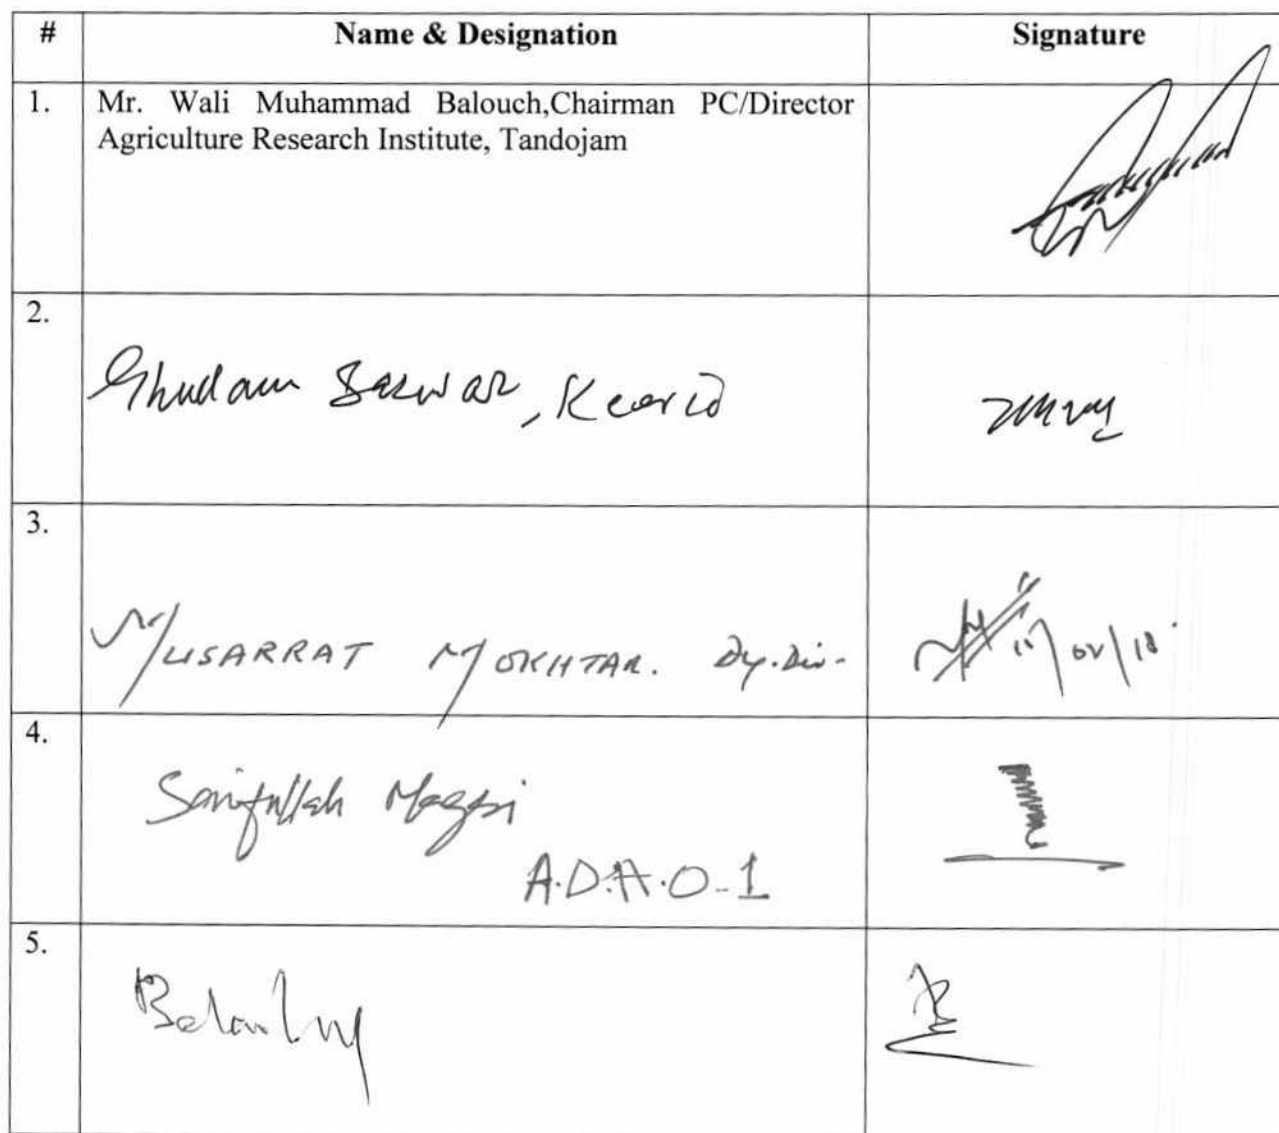 # Name & Designation Signature
1. Mr. Wali Muhammad Balouch,Chairman PC/Director
Agriculture Research Institute, Tandojam
2.
Ghulam Sarwar, Keerio
3.
MUSARRAT MOKHTAR. Dy. Dir. /02/18
4.
Saifullah Magsi
A.D.A.O-1
5.